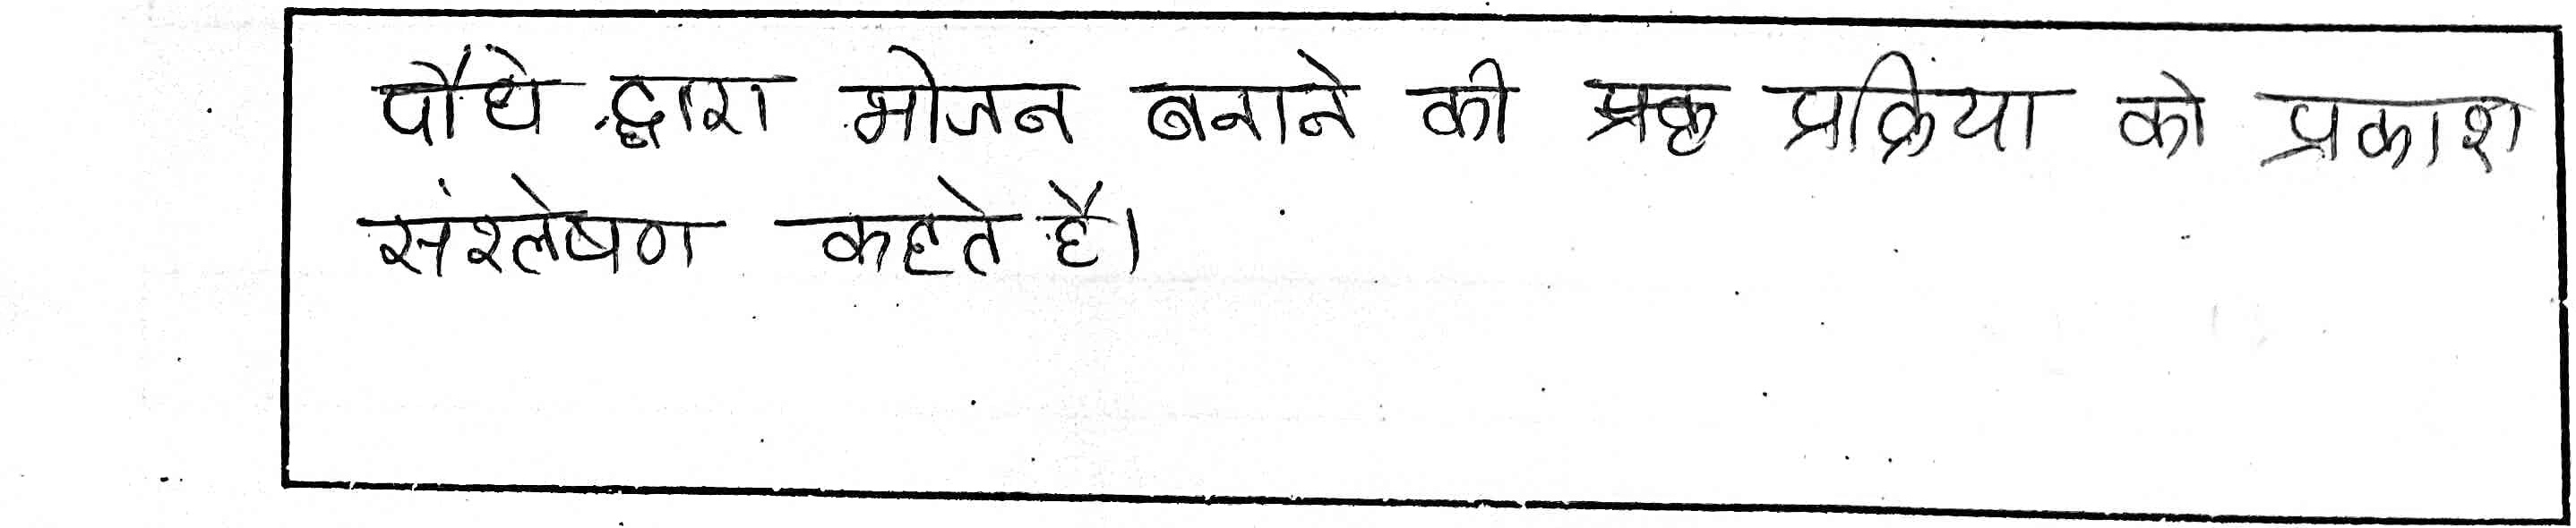 पौधे द्वारा भोजन बनाने की प्रक्रिया को प्रकाश
संश्लेषण कहते है।